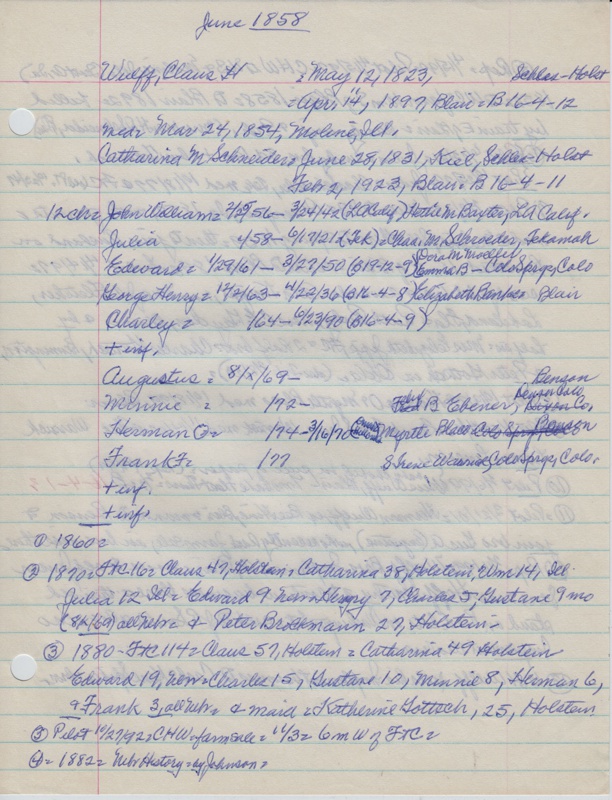 June 1858
Wulff, Claus H = May 12, 1823, Schles-Holst
= Apr. 14, 1897, Blair = B 16-4-12
med = Mar 24, 1854, Moline, Ill.
Catharina M Schneider = June 28, 1831, Kiel, Schles-Holst
Feb 2, 1923, Blair = B 16-4-11
12 ch = John William = 2/25/56 - 3/24/42 (LA Calif) M Baxter, LA Calif.
Julia 4/58 - 6/17/21 (Tek) = Chas. M. Schroeder, Tekamah
Dora M Moeller
Edward = 1/29/61 - 3/27/50 (B19-12-9) Emma B - Colo Sprgs, Colo
George Henry = 12/2/63 - 4/22/36 (B16-4-8) Elizabeth Blair
Charley = /64 - 6/23/90 (B16-4-9)
+ inf.
Augustus = 8/x/69 - Benson
Minnie = /72 - B Ebener, Co,
Herman = /74 - 3/16/70 Myrtle Benson
Frank F = /77 S Irene Colo Sprgs, Colo.
+ inf.
+ inf.
① 1860 =
② 1870 = FtC 16 = Claus 47, Holstein, Catharina 38, Holstein, Wm 14, Ill.
Julia 12 Ill = Edward 9 Nebr = Henry 7, Charles 5, Gustane 9 mo
(8/x/69) all Nebr = & Peter Brockmann 27, Holstein.
③ 1880 - FtC 114 = Claus 57, Holstein = Catharina 49 Holstein
Edward 19, Nebr = Charles 15, Gustane 10, Minnie 8, Herman 6,
& Frank 3, all Nebr = & maid = Katherine Gottsch, 25, Holstein
③ Pilot 10/27/92 = CHW = farm sale = 11/3 = 6 m W of FtC =
④ = 1882 = Nebr History = by Johnson =